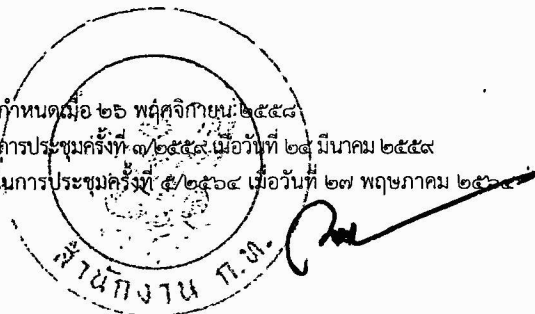 กำหนดเมื่อ ๒๖ พฤศจิกายน ๒๕๕๘
การประชุมครั้งที่ ๓/๒๕๕๙ เมื่อวันที่ ๒๔ มีนาคม ๒๕๕๙
นการประชุมครั้งที่ ๕/๒๕๖๔ เมื่อวันที่ ๒๗ พฤษภาคม ๒๕๖๔
สำนักงาน ก.ท.